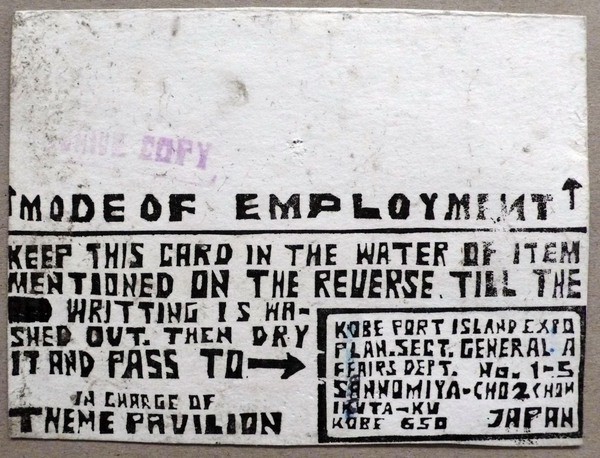 COPY
MODE OF EMPLOYMENT
KEEP THIS CARD IN THE WATER OF ITEM
MENTIONED ON THE REVERSE. TILL THE
WRITTING IS WA-
SHED OUT. THEN DRY
IT AND PASS TO
IN CHARGE OF
THEME PAVILION
KOBE PORT ISLAND EXPO
PLAN. SECT. GENERAL A
FFAIRS DEPT. No. 1-5
SANNOMIYA-CHO 2 CHOM
IKUTA-KU
KOBE 650 JAPAN